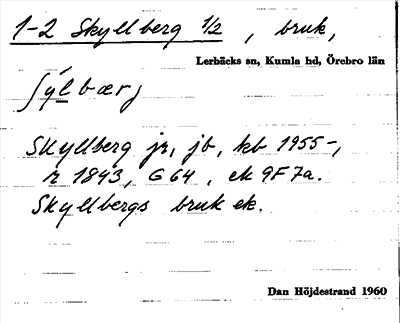 1-2 Skyllberg 1/2, bruk,
Lerbäcks sn, Kumla hd, Örebro län
Skyllberg jr, jb, kb 1955-,
r 1843, G 64, ek 9F7a.
Skyllbergs bruk ek.
Dan Höjdestrand 1960